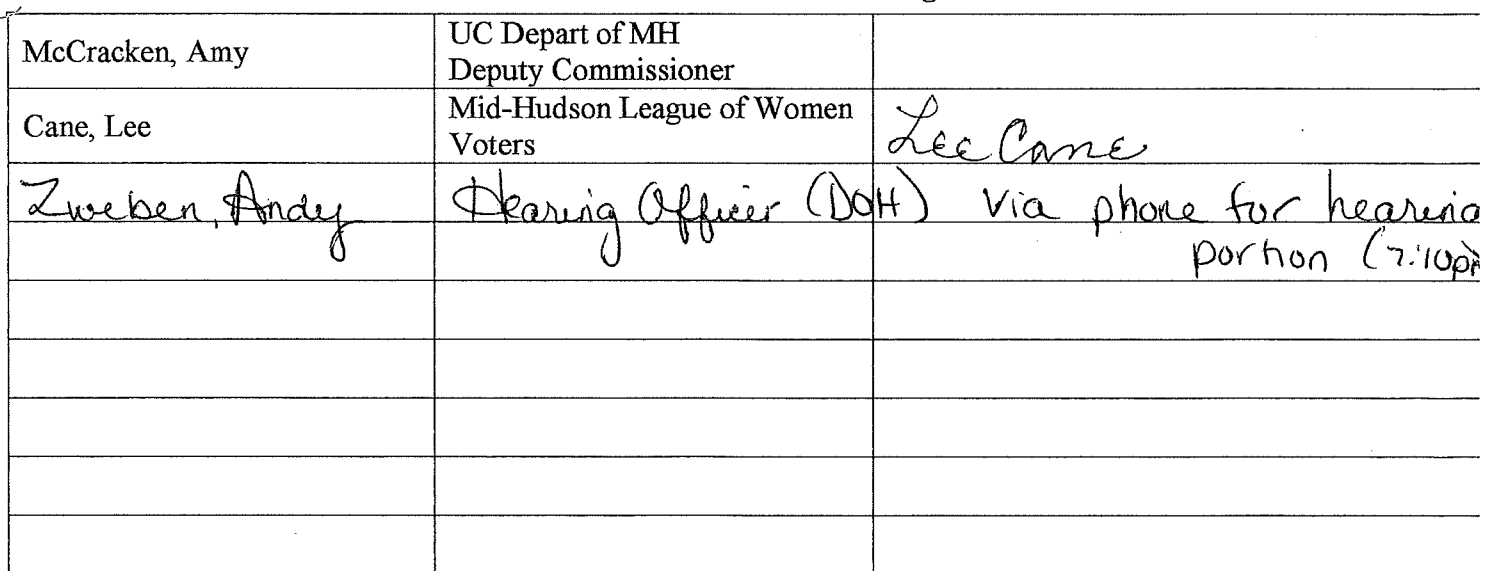 McCracken, Amy
UC Depart of MH
Deputy Commissioner
Cane, Lee
Mid-Hudson League of Women
Voters
Lee Cane
Zweben, Andy
Hearing Officer (DOH)
Via phone for hearing
portion (7:10pm